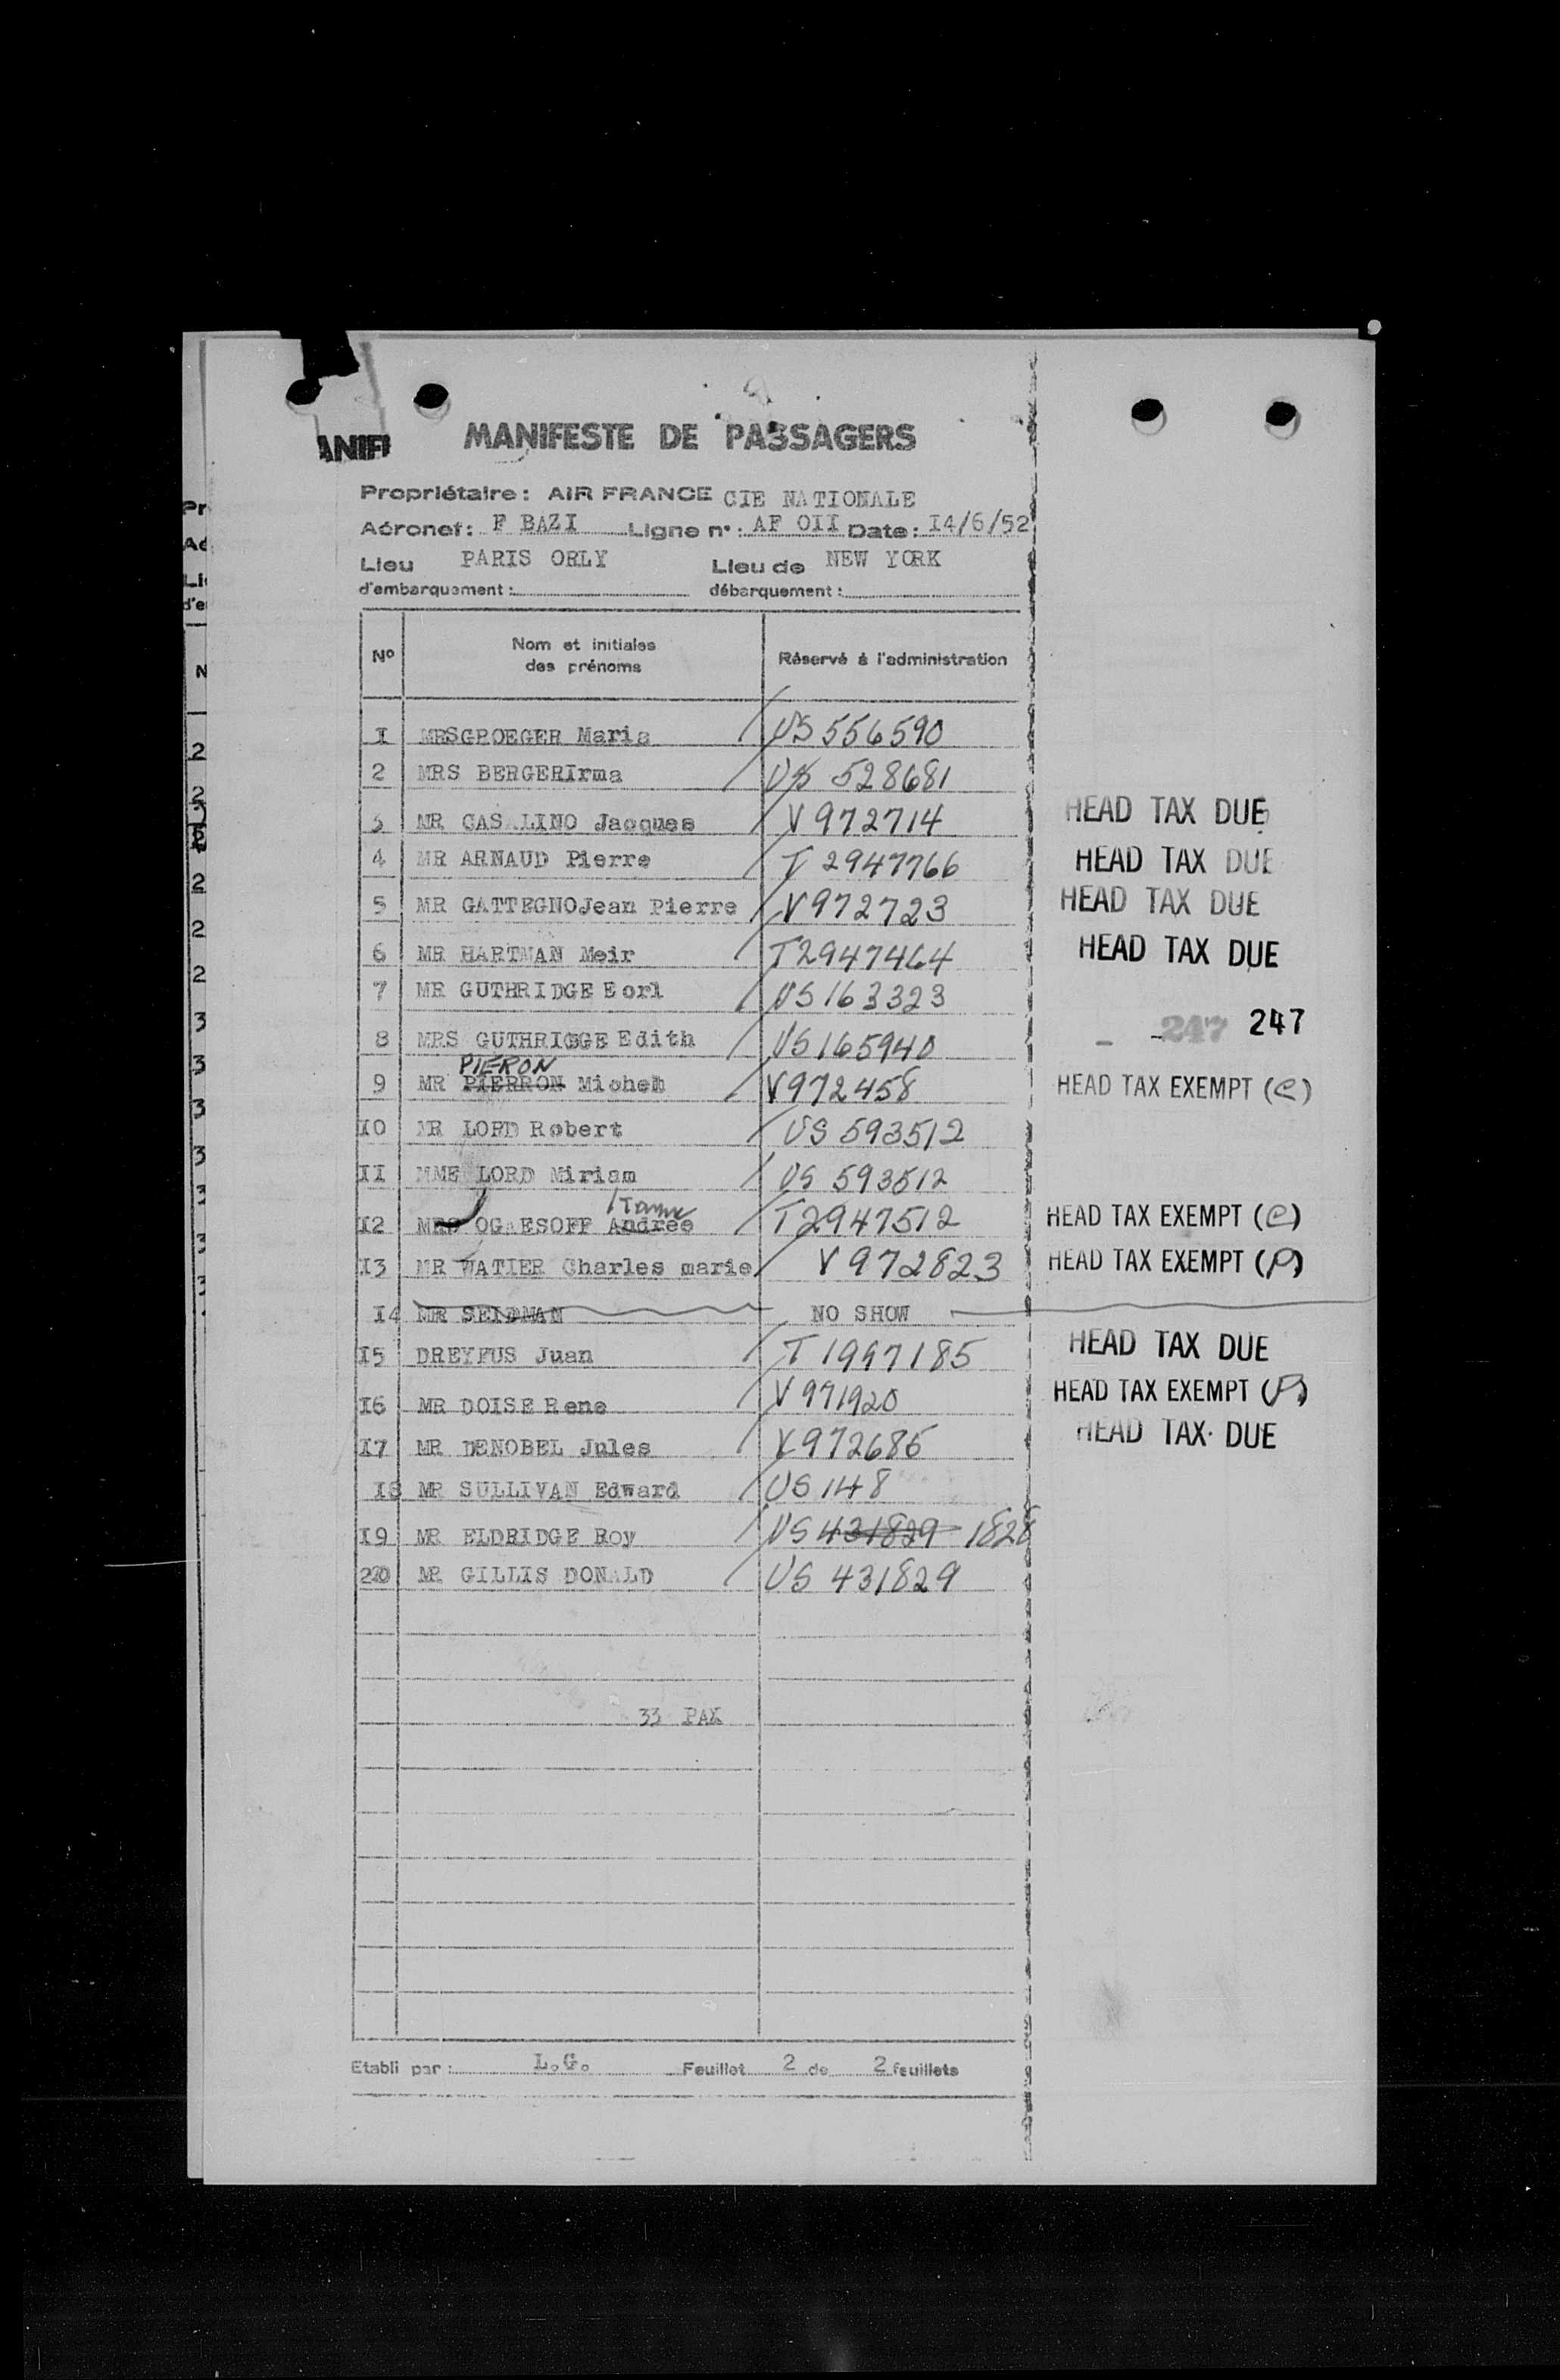 ANIFE
MANIFESTE DE PASSAGERS
Propriétaire: AIR FRANCE CIE NATIONALE
Aéronef: F BAZI Ligne n°: AF OII Date: I4/6/52
Lieu d'embarquement: PARIS ORLY Lieu de débarquement: NEW YORK
N° Nom et initiales des prénoms Réservé à l'administration
I MRSGROEGER Maria US 556590
2 MRS BERGERIrma US 528681
3 MR CASALINO Jacques V 972714 HEAD TAX DUE
4 MR ARNAUD Pierre T 2947766 HEAD TAX DUE
5 MR GATTEGNOJean Pierre V 972723 HEAD TAX DUE
6 MR HARTMAN Meir T2947464 HEAD TAX DUE
7 MR GUTHRIDGE Eorl US 163323
247 247
8 MRS GUTHRIDGE Edith US 165940
PIERON
9 MR PIERRON Michel V972458 HEAD TAX EXEMPT (C)
IO MR LORD Robert US 593512
II MME LORD Miriam US 593512
I2 MRS OGAESOFF Andree T2947512 HEAD TAX EXEMPT (C)
I3 MR WATIER Charles marie V 972823 HEAD TAX EXEMPT (P)
I4 MR SEIDMAN NO SHOW
I5 DREYFUS Juan T 1997185 HEAD TAX DUE
I6 MR DOISE Rene V 971920 HEAD TAX EXEMPT (P)
I7 MR DENOBEL Jules V 972685 HEAD TAX DUE
I8 MR SULLIVAN Edward US 148
I9 MR ELDRIDGE Roy US 431829 1828
20 MR GILLIS DONALD US 431829
33 PAX
Etabli par: L.G. Feuillet 2 de 2 feuillets